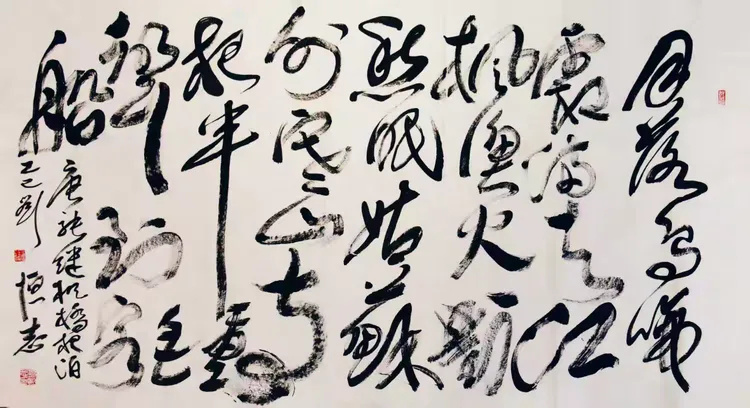 月落乌啼
霜满天江
枫渔火对
愁眠姑苏
外寒山寺
夜半鐘
聲到客
船
唐张继枫桥夜泊
乙巳刘恒志